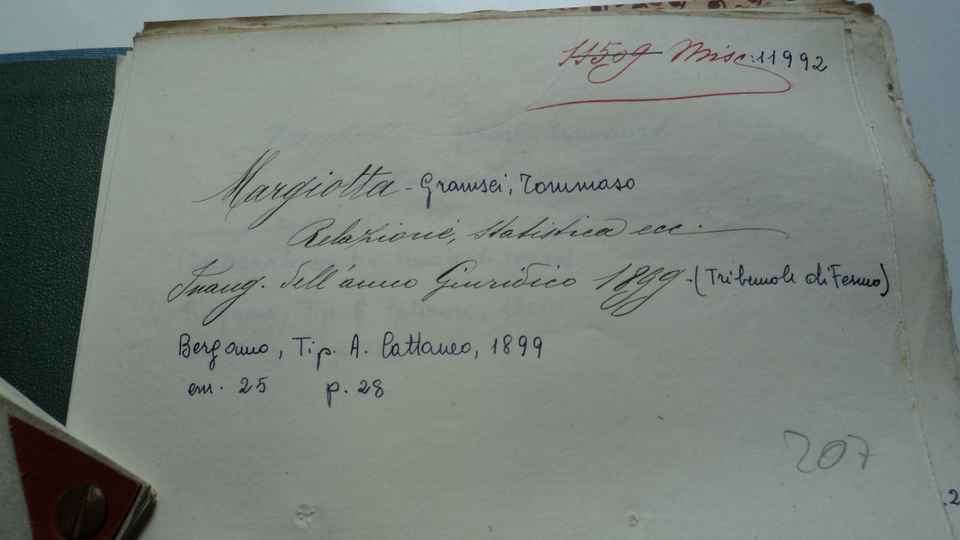 11509 Misc: 11992
Margiotta - Gramsei, Tommaso
Relazione, Statistica ecc.
Inaug. dell'anno Giuridico 1899 - (Tribunale di Fermo)
Bergamo, Tip. A. Cattaneo, 1899
cm. 25 p. 28
207
.2